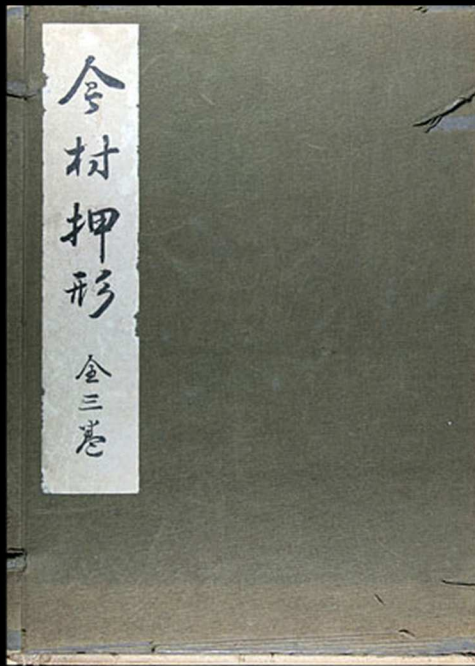 今村押形 全三巻